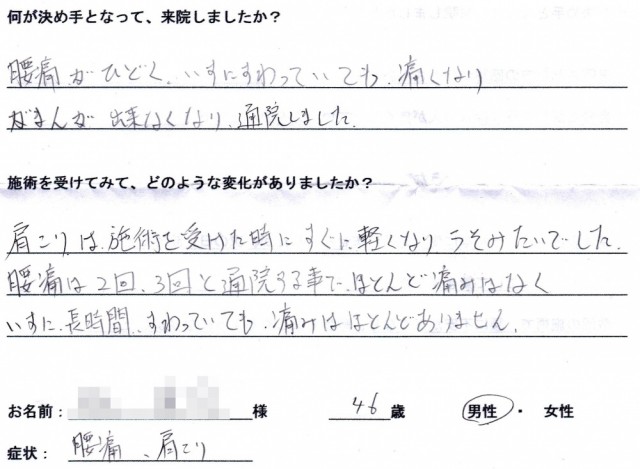 何が決め手となって、来院しましたか？
腰痛がひどく、いすにすわっていても、痛くなり
がまんが出来なくなり、通院しました。
施術を受けてみて、どのような変化がありましたか？
肩こりは、施術を受けた時にすぐに軽くなりうそみたいでした。
腰痛は2回、3回と通院する事で、ほとんど痛みはなく
いすに、長時間、すわっていても、痛みはほとんどありません。
お名前： 様 46歳 男性・ 女性
症状： 腰痛、肩こり